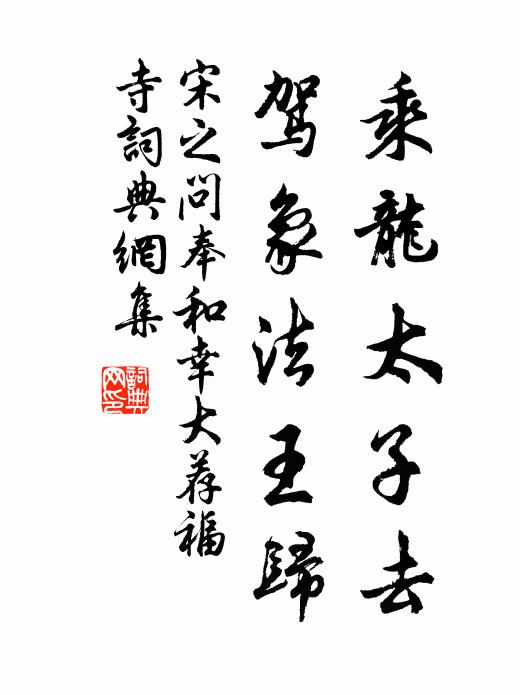 乘龍太子去
駕象法王歸
宋之问奉和幸大荐福
寺詞典網集
詞典
网印